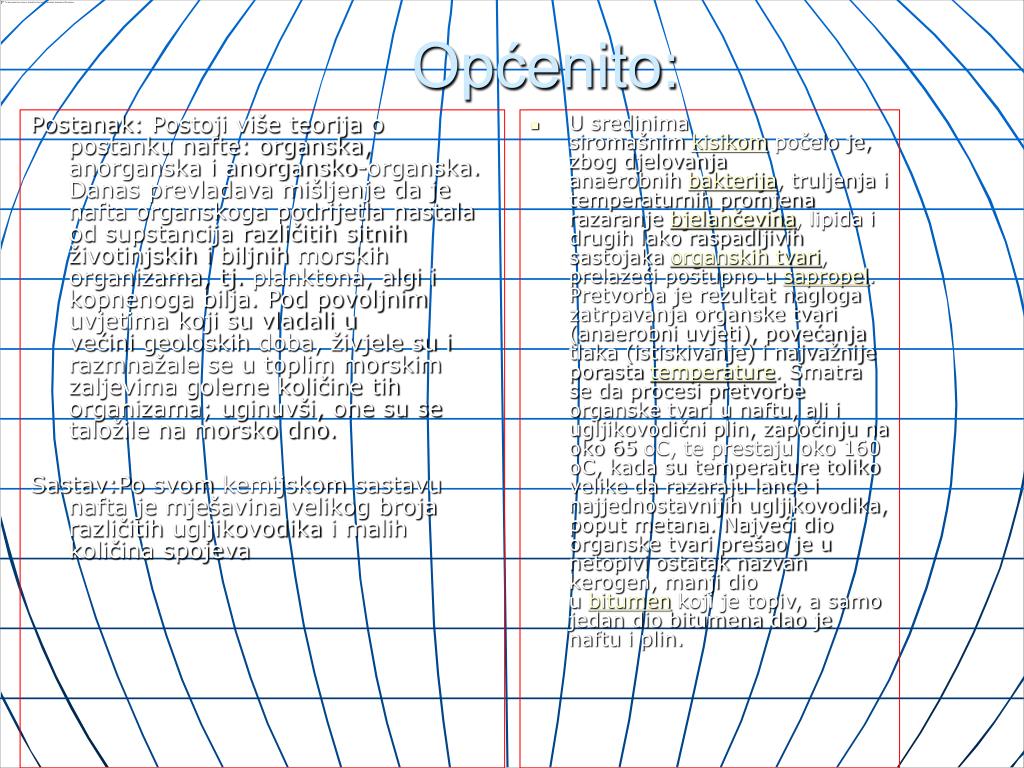 Općenito:
Postanak: Postoji više teorija o
postanku nafte: organska,
anorganska i anorgansko-organska.
Danas prevladava mišljenje da je
nafta organskoga podrijetla nastala
od supstancija različitih sitnih
životinjskih i biljnih morskih
organizama, tj. planktona, algi i
kopnenoga bilja. Pod povoljnim
uvjetima koji su vladali u
većini geoloških doba, živjele su i
razmnažale se u toplim morskim
zaljevima goleme količine tih
organizama; uginuvši, one su se
taložile na morsko dno.
Sastav:Po svom kemijskom sastavu
nafta je mješavina velikog broja
različitih ugljikovodika i malih
količina spojeva
U sredinima
siromašnim kisikom počelo je,
zbog djelovanja
anaerobnih bakterija, truljenja i
temperaturnih promjena
razaranje bjelančevina, lipida i
drugih lako raspadljivih
sastojaka organskih tvari,
prelazeći postupno u sapropel.
Pretvorba je rezultat nagloga
zatrpavanja organske tvari
(anaerobni uvjeti), povećanja
tlaka (istiskivanje) i najvažnije
porasta temperature. Smatra
se da procesi pretvorbe
organske tvari u naftu, ali i
ugljikovodični plin, započinju na
oko 65 oC, te prestaju oko 160
oC, kada su temperature toliko
velike da razaraju lance i
najjednostavnijih ugljikovodika,
poput metana. Najveći dio
organske tvari prešao je u
netopivi ostatak nazvan
kerogen, manji dio
u bitumen koji je topiv, a samo
jedan dio bitumena dao je
naftu i plin.